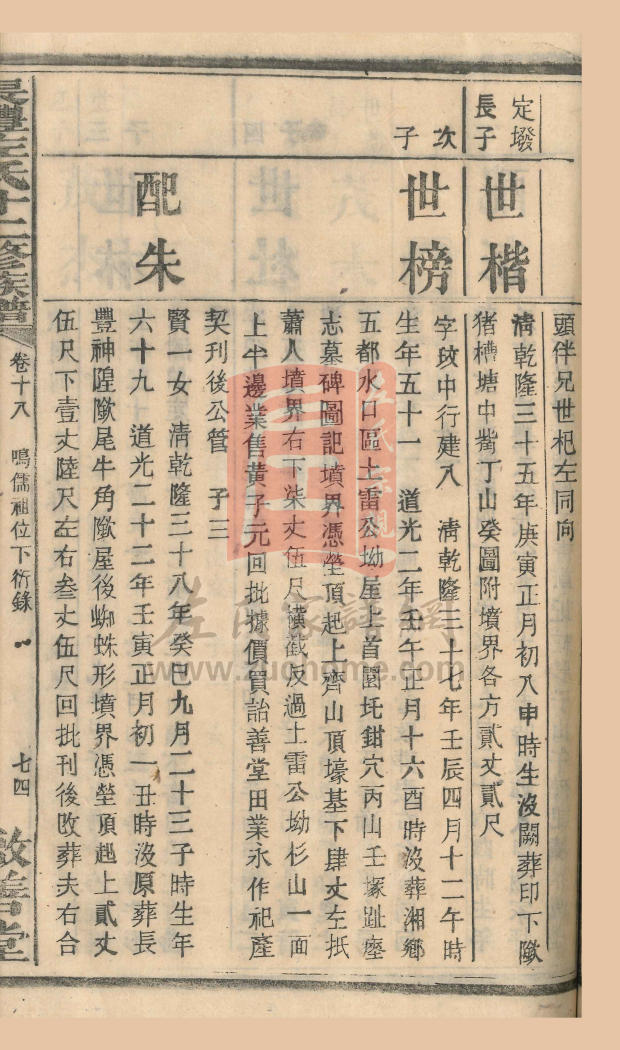 頭伴兄世杞左同向
定墢長子
世楷
清乾隆三十五年庚寅正月初八申時生沒闕葬印下隞
猪槽塘中嵜丁山癸圖附墳界各方貳丈貳尺
次子
世榜
字玟中行建八 清乾隆三十七年壬辰四月十二午時
生年五十一 道光二年壬午正月十六酉時沒葬湘鄉
五都水口區土雷公坳屋上首園圫鉗穴丙山壬塜趾𡋾
志墓碑圖記墳界憑塋頂起上齊山頂壕基下肆丈左抵
蕭人墳界右下柒丈伍尺橫截反過土雷公坳杉山一面
上半邊業售黃子元回批據價買詒善堂田業永作祀產
契刊後公管 子三
配朱
賢一女 清乾隆三十八年癸巳九月二十三子時生年
六十九 道光二十二年壬寅正月初一丑時沒原葬長
豐神隍隞尾牛角隞屋後蜘蛛形墳界憑塋頂趨上貳丈
伍尺下壹丈陸尺左右叁丈伍尺回批刊後攺葬夫右合
長豐左氏十二修族譜
卷十八
鳴儒祖位下衍錄
七四
敦善堂
左氏家譜網
www.zuohome.com